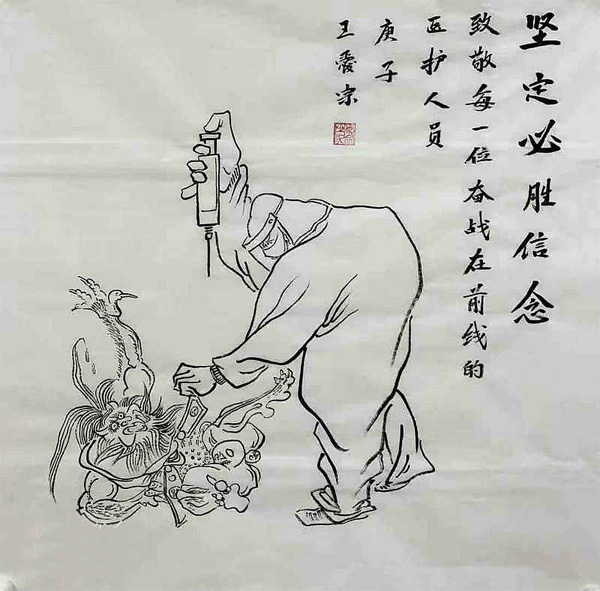 坚定必胜信念
致敬每一位奋战在前线的
医护人员
庚子
王爱宗